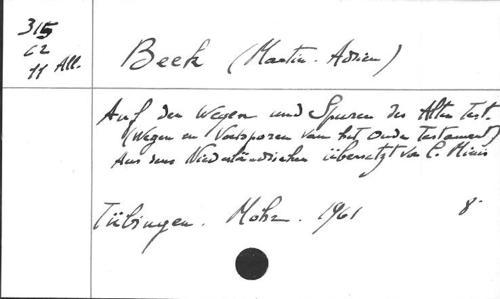 315
C2
11 All.
Beek (Martin-Adrien)
Auf den Wegen und Spuren des Alten Test.
(Wegen en Voetsporen van het Oude Testament)
Aus dem Niederländischen übersetzt von C.
Tübingen. Mohr. 1961 8°